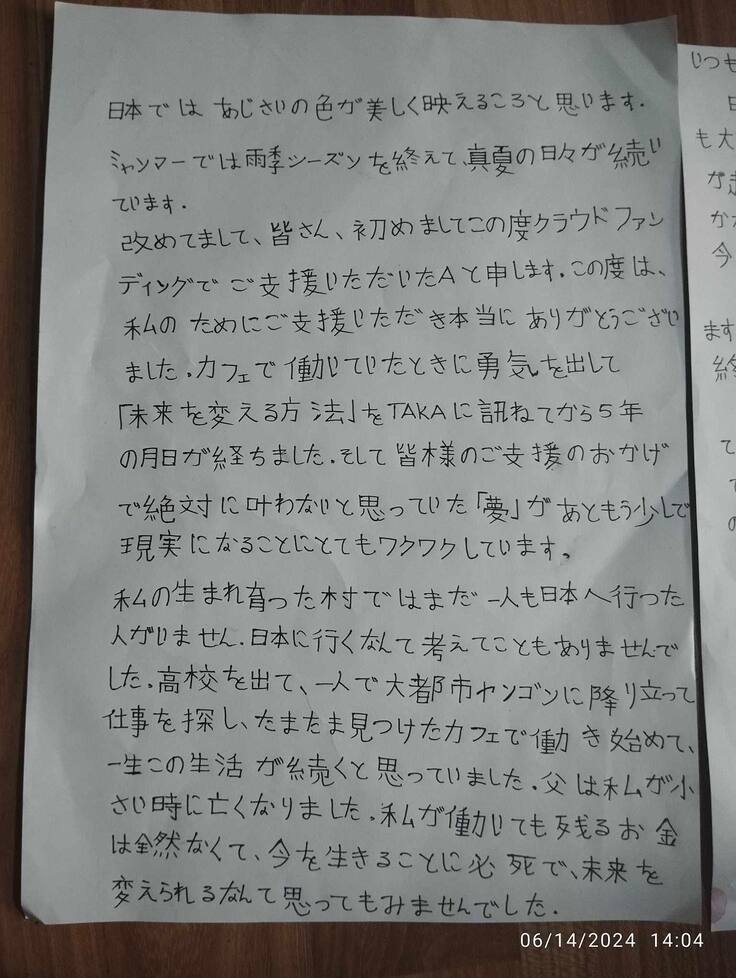 日本では あじさいの色が美しく映えるころと思います.
ミャンマーでは雨季シーズンを終えて、真夏の日々が続い
ています.
改めてまして、皆さん、初めましてこの度クラウドファン
ディングでご支援いただいたAと申します.この度は、
私のためにご支援いただき本当にありがとうござい
ました.カフェで働いていたときに勇気を出して
「未来を変える方法」をTAKAに訊ねてから5年
の月日が経ちました.そして皆様のご支援のおかげ
で絶対に叶わないと思っていた「夢」があともう少しで
現実になることにとてもワクワクしています。
私の生まれ育った村ではまだ一人も日本へ行った
人がいません.日本に行くなんて考えてこともありませんで
した.高校を出て、一人で大都市ヤンゴンに降り立って
仕事を探し、たまたま見つけたカフェで働き始めて、
一生この生活が続くと思っていました.父は私が小
さい時に亡くなりました.私が働いても残るお金
は全然なくて、今を生きることに必死で、未来を
変えられるなんて思ってもみませんでした.
いつも
も大
今
ます
06/14/2024 14:04